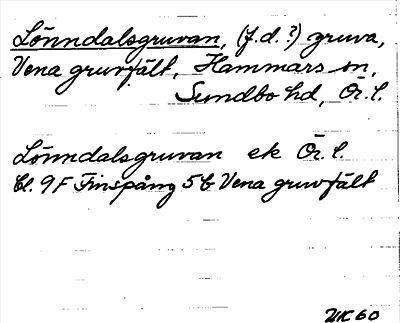 Lönndalsgruvan, (f.d.?) gruva,
Vena gruvfält, Hammars sn,
Sundbo hd, Ör. l.
Lönndalsgruvan ek Ör. l.
Bl. 9F Finspång 5b Vena gruvfält
UK 60